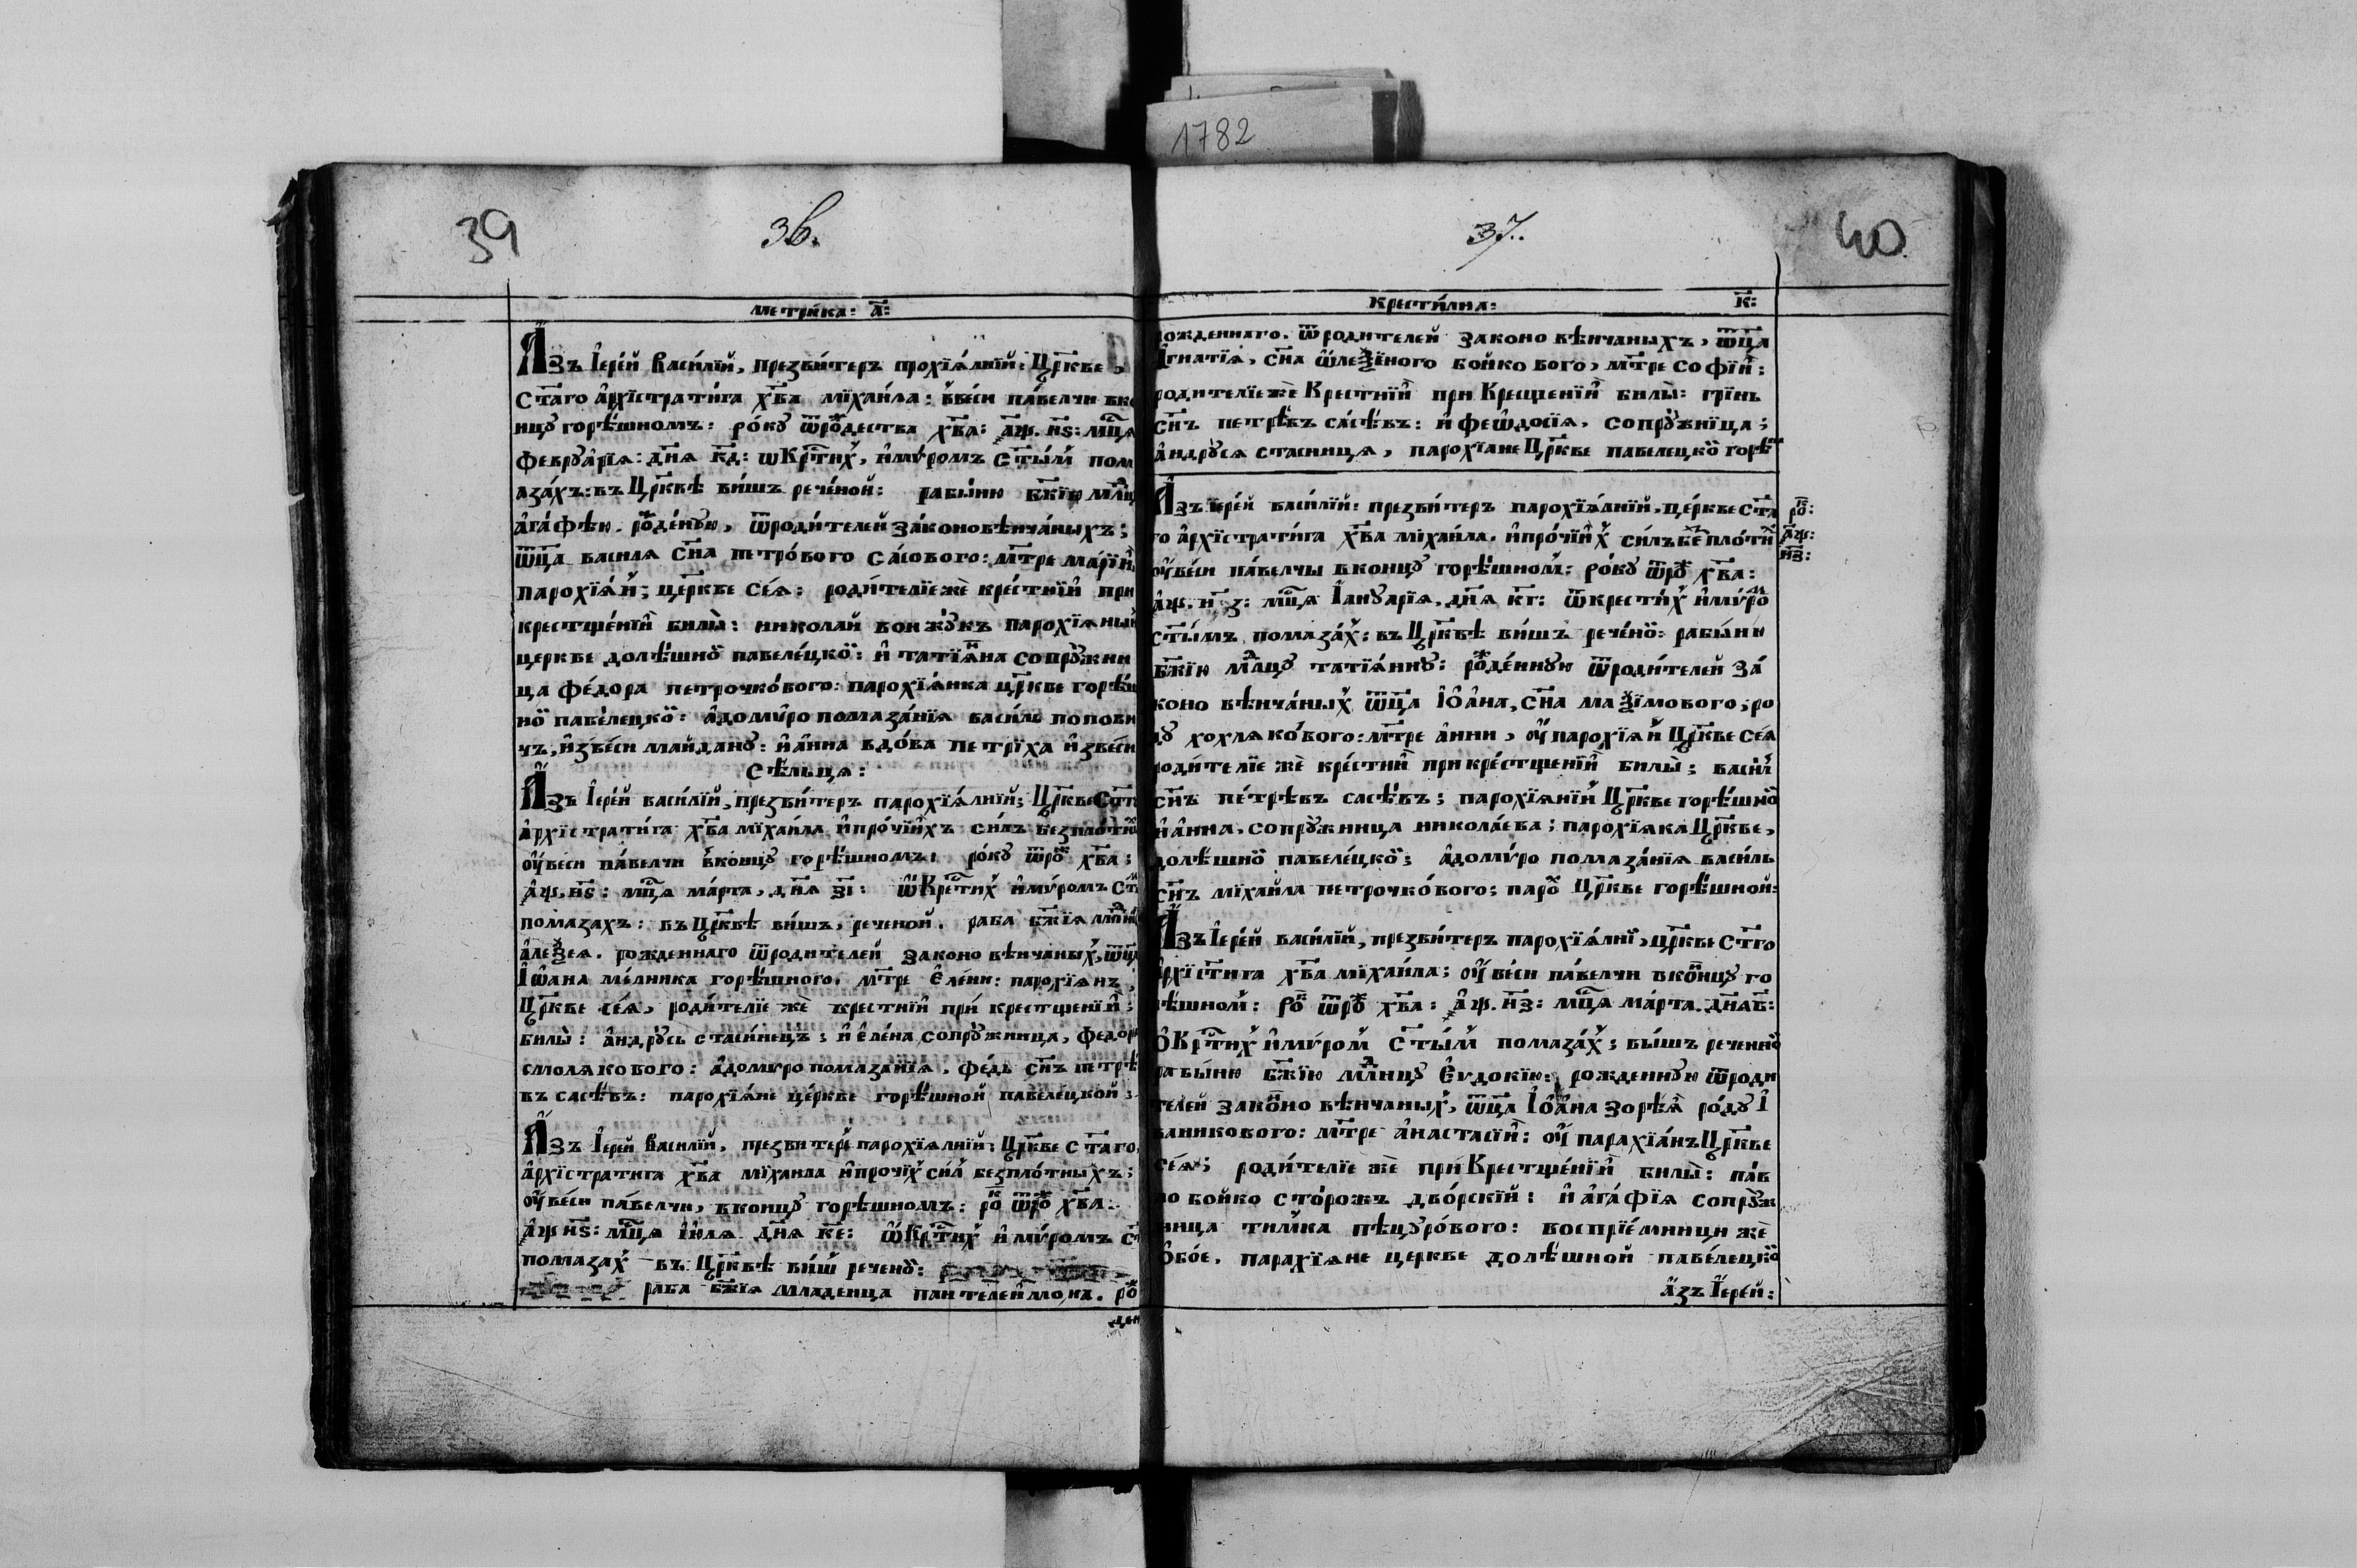 1782
39
36.
метрика: а҃:
Азъ Іерей Василїй, презвитеръ прохїялнїй: Цр҃кве,
Ст҃аго архїстратига хв҃а мїхаила: ввеси павелчи вко
нцꙋ горѣшномъ: рокꙋ ѿрождества хв҃а: ҂аѱ.нѕ҃: мц҃я
февруарїя: дн҃я кд҃: ѡкрⷭ҇тихъ, имѵромъ ст҃ымъ пом
азахъ: въ Цр҃квѣ вишъ реченой: рабыню бж҃їю млⷣнц
агафѣю. рожденꙋю, ѿродителей законовѣнчаныхъ;
ѿц҃а василя сн҃а петрового сасового: мт҃ре марїи
парохїянъ; церкве сея: родителїе же крестнїи при
крестщенїи былы: николай вонжꙋкъ парохїяный
церкве долѣшной павелецкой: и татїянна сопрꙋжни
ца федора петрочкового: парохїянка цр҃кве горѣш
ной павелецкой: адомѵро помазанїя василь попови
чъ, извеси майданꙋ: и анна вдова петрїха извеси
сѣльця:
Азъ Іерей василїй, презвитеръ парохїялнїй; Цр҃кве Ст҃го
архїстратига хв҃а мїхаила ипрочїихъ силъ безплотны
ѹвеси павелчи вконцꙋ горѣшномъ: рокꙋ ѿрож хв҃а;
҂аѱ.нѕ҃: мц҃я марта, дн҃я зі҃: ѡкрⷭ҇тихъ имѵромъ ст҃
помазахъ: въ Цр҃квѣ вишъ, реченой. раба бж҃їя млⷣн
алеѯея. рожденнаго ѿродителей законо вѣнчаныхъ, ѿц҃
Іѡана мелника горѣшного, мт҃ре елени: парохїянъ,
Цр҃кве сея, родителїе же крестнїи при крестщенїи;
былы: андрꙋсь стасинецъ; и елена сопрꙋжница, федор
смолякового: адомѵро помазанїя, федь сн҃ъ петрѣ
въ сасѣвъ: парохїяне церкве горѣшной павелецкой;
Азъ Іерей василїй, презвитеръ парохїялнїй; Цр҃кве ст҃аго,
архїстратига хв҃а мїхаила ипрочїхъ силъ безплотныхъ;
ѹвеси павелчи, вконцꙋ горѣшномъ: рокꙋ ѿрож хв҃а.
҂аѱ нѕ҃: мц҃я июля дн҃я ке҃: ѡкрⷭ҇тихъ имѵромъ ст҃
помазахъ въ Цр҃квѣ вишъ реченой:
раба бж҃їя младенца пантелеимона. рож
ден
37.
40
крестилна:
к҃:
рожденнаго. ѿродителей законо вѣнчаныхъ, ѿц҃а
Игнатїя, сн҃а ѡлеѯїного бойкового, мт҃ре софїи;
родителїе же крестнїи при крещенїи былы: грїнь
сн҃ъ петрѣвъ сасѣвъ: и феѡдосїя, сопрꙋжнїца;
андрꙋся стасинця, парохїане Цр҃кве павелецкой горѣш
Азъ іерей василїй: презвитеръ парохїялнїй, церкве ст҃а
го архїстратига хв҃а мїхаила. ипрочїихъ силъ безплотны
ѹвеси павелчы вконцꙋ горѣшномъ: рокꙋ ѿрож хв҃а:
҂аѱ.нз҃: мц҃я Іануарїя. дн҃я кг҃: ѡкрестихъ имѵромъ
ст҃ымъ помазахъ: въ Цр҃квѣ вишъ реченой: рабыню
бж҃їю млⷣнцꙋ татїяннꙋ: рожденнꙋю ѿродителей за
коно вѣнчаныхъ ѿц҃а Іоана, сн҃а маѯїмового, ро
дꙋ хохлякового: мт҃ре анни, ѹ парохїянъ Цр҃кве сея
родителїе же крестнїи при крестщенїи былы: василь
сн҃ъ петрѣвъ сасѣвъ; парохїянїнъ Цр҃кве горѣшной
и анна, сопрꙋжница николаева; парохїяка Цр҃кве,
долѣшной павелецкой; адомѵро помазанїя василь
сн҃ъ мїхаила петрочкового; парох Цр҃кве горѣшной:
рокꙋ:
҂аѱ:
нз҃:
Азъ Іерей василїй, презвитеръ парохїялнїй, цр҃кве ст҃го
архїстига хв҃а мїхаила; ѹ веси павелчи вконцꙋ го
рѣшномъ: рокꙋ ѿрож хв҃а: ҂аѱ.нз҃: мц҃я марта. дн҃я в҃:
окрⷭ҇тихъ имѵромъ ст҃ымъ помазахъ; вышъ реченной
рабыню бж҃їю млⷣнцꙋ еѵдокїю: рожденнꙋю ѿроди
телей законо вѣнчаныхъ, ѿц҃а Іоана зорѣя родꙋ І
ванникового: мт҃ре анастасїи: ѹ парахїанъ Цр҃кве
сея; родителїе же при крестщенїи былы: пав
ло бойко сторожъ дворскїй: и агафїя сопрꙋж
ница тимка пѣцꙋрового: воспрїемници же
обое, парахїяне церкве долѣшной павелецкой
азъ Іерей: